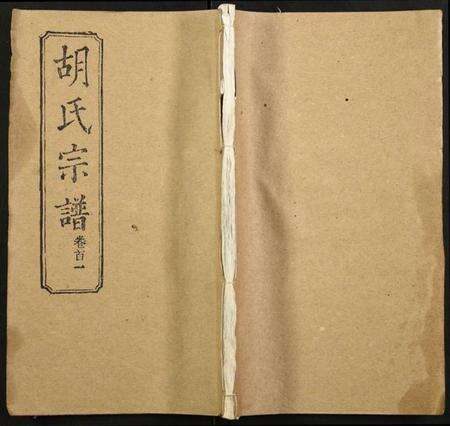 胡氏宗譜
卷首一